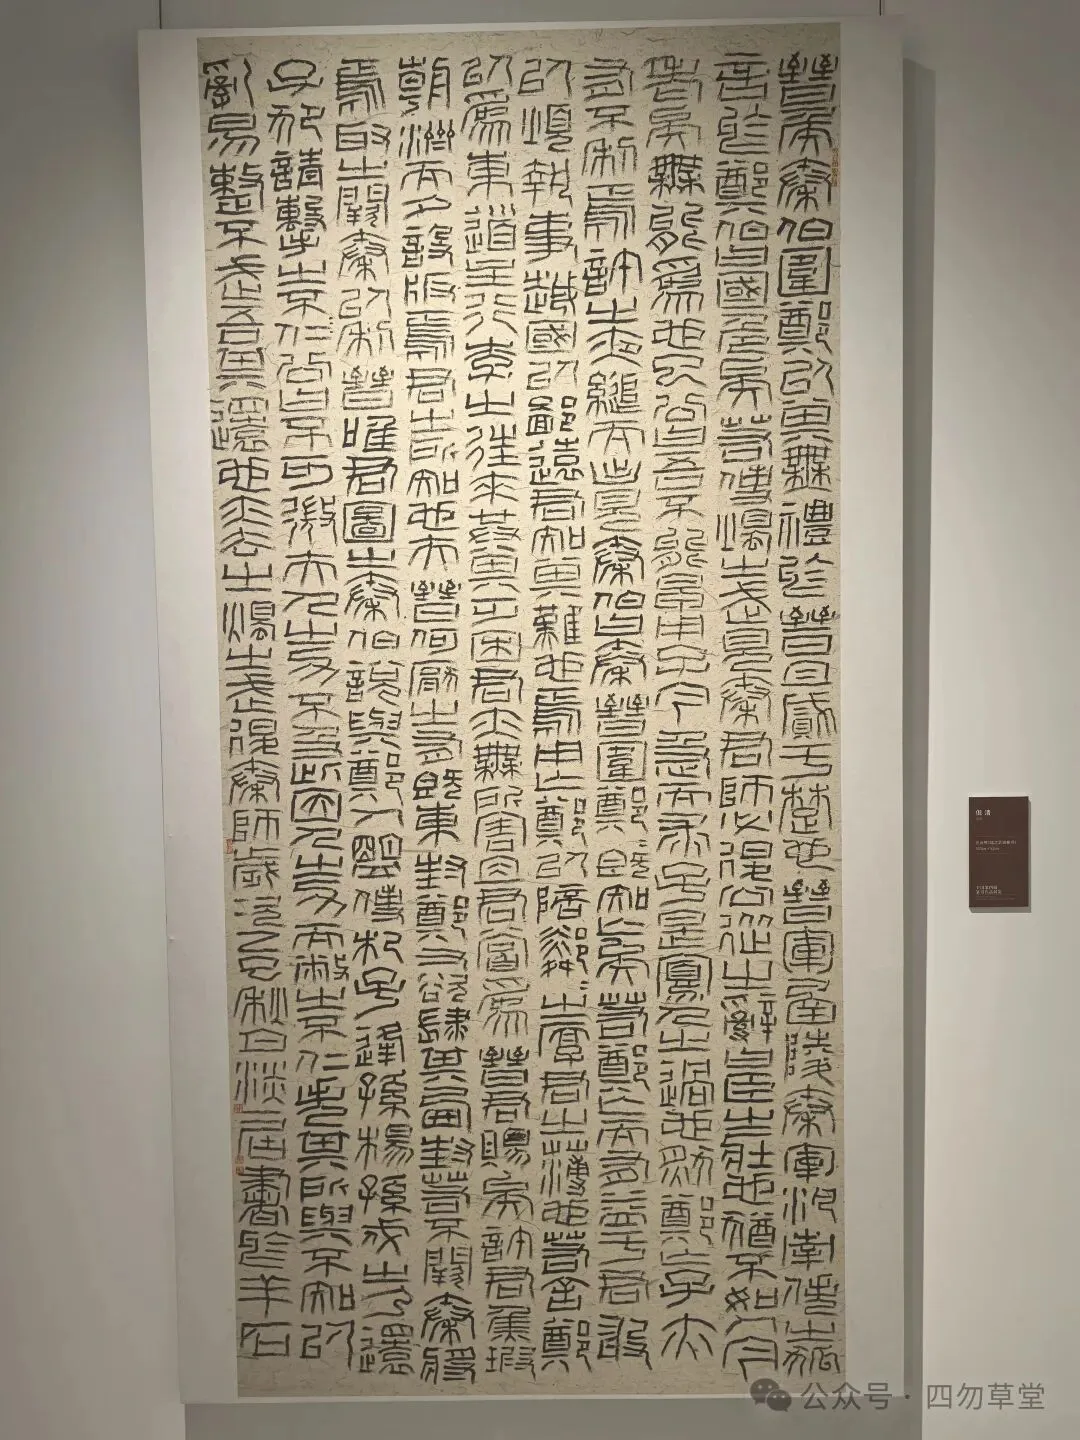 晉侯秦伯圍鄭以其無禮於晉且貳于楚也晉軍函陵秦軍氾南佚之狐
言於鄭伯曰國危矣若使燭之武見秦君師必退公從之辭曰臣之壯也猶不如人今
老矣無能爲也已公曰吾不能早用子今急而求子是寡人之過也然鄭亡子亦
有不利焉許之夜縋而出見秦伯曰秦晉圍鄭鄭既知亡矣若鄭亡而有益于君敢
以煩執事越國以鄙遠君知其難也焉用亡鄭以陪鄰鄰之厚君之薄也若舍鄭
以爲東道主行李之往來共其乏困君亦無所害且君嘗爲晉君賜矣許君焦瑕
朝濟而夕設版焉君之所知也夫晉何厭之有既東封鄭又欲肆其西封若不闕秦將
焉取之闕秦以利晉唯君圖之秦伯說與鄭人盟使杞子逢孫楊孫戍之乃還
子犯請擊之不仁公曰不可微夫人之力不及此因人之力而敝之不仁失其所與不知以
亂易整不武吾其還也亦去之燭之武退秦師歲次乙巳秋日淡居書於羊石
公众号·四勿草堂